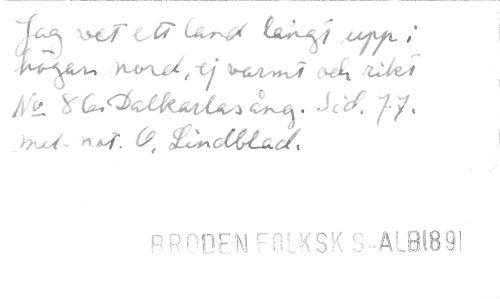 Jag vet ett land långt upp i
högan nord, ej varmt och rikt
No 86. Dalkarlasång. Sid. 77.
met. not. O. Lindblad.
BRODEN FOLKSK S-ALB1891